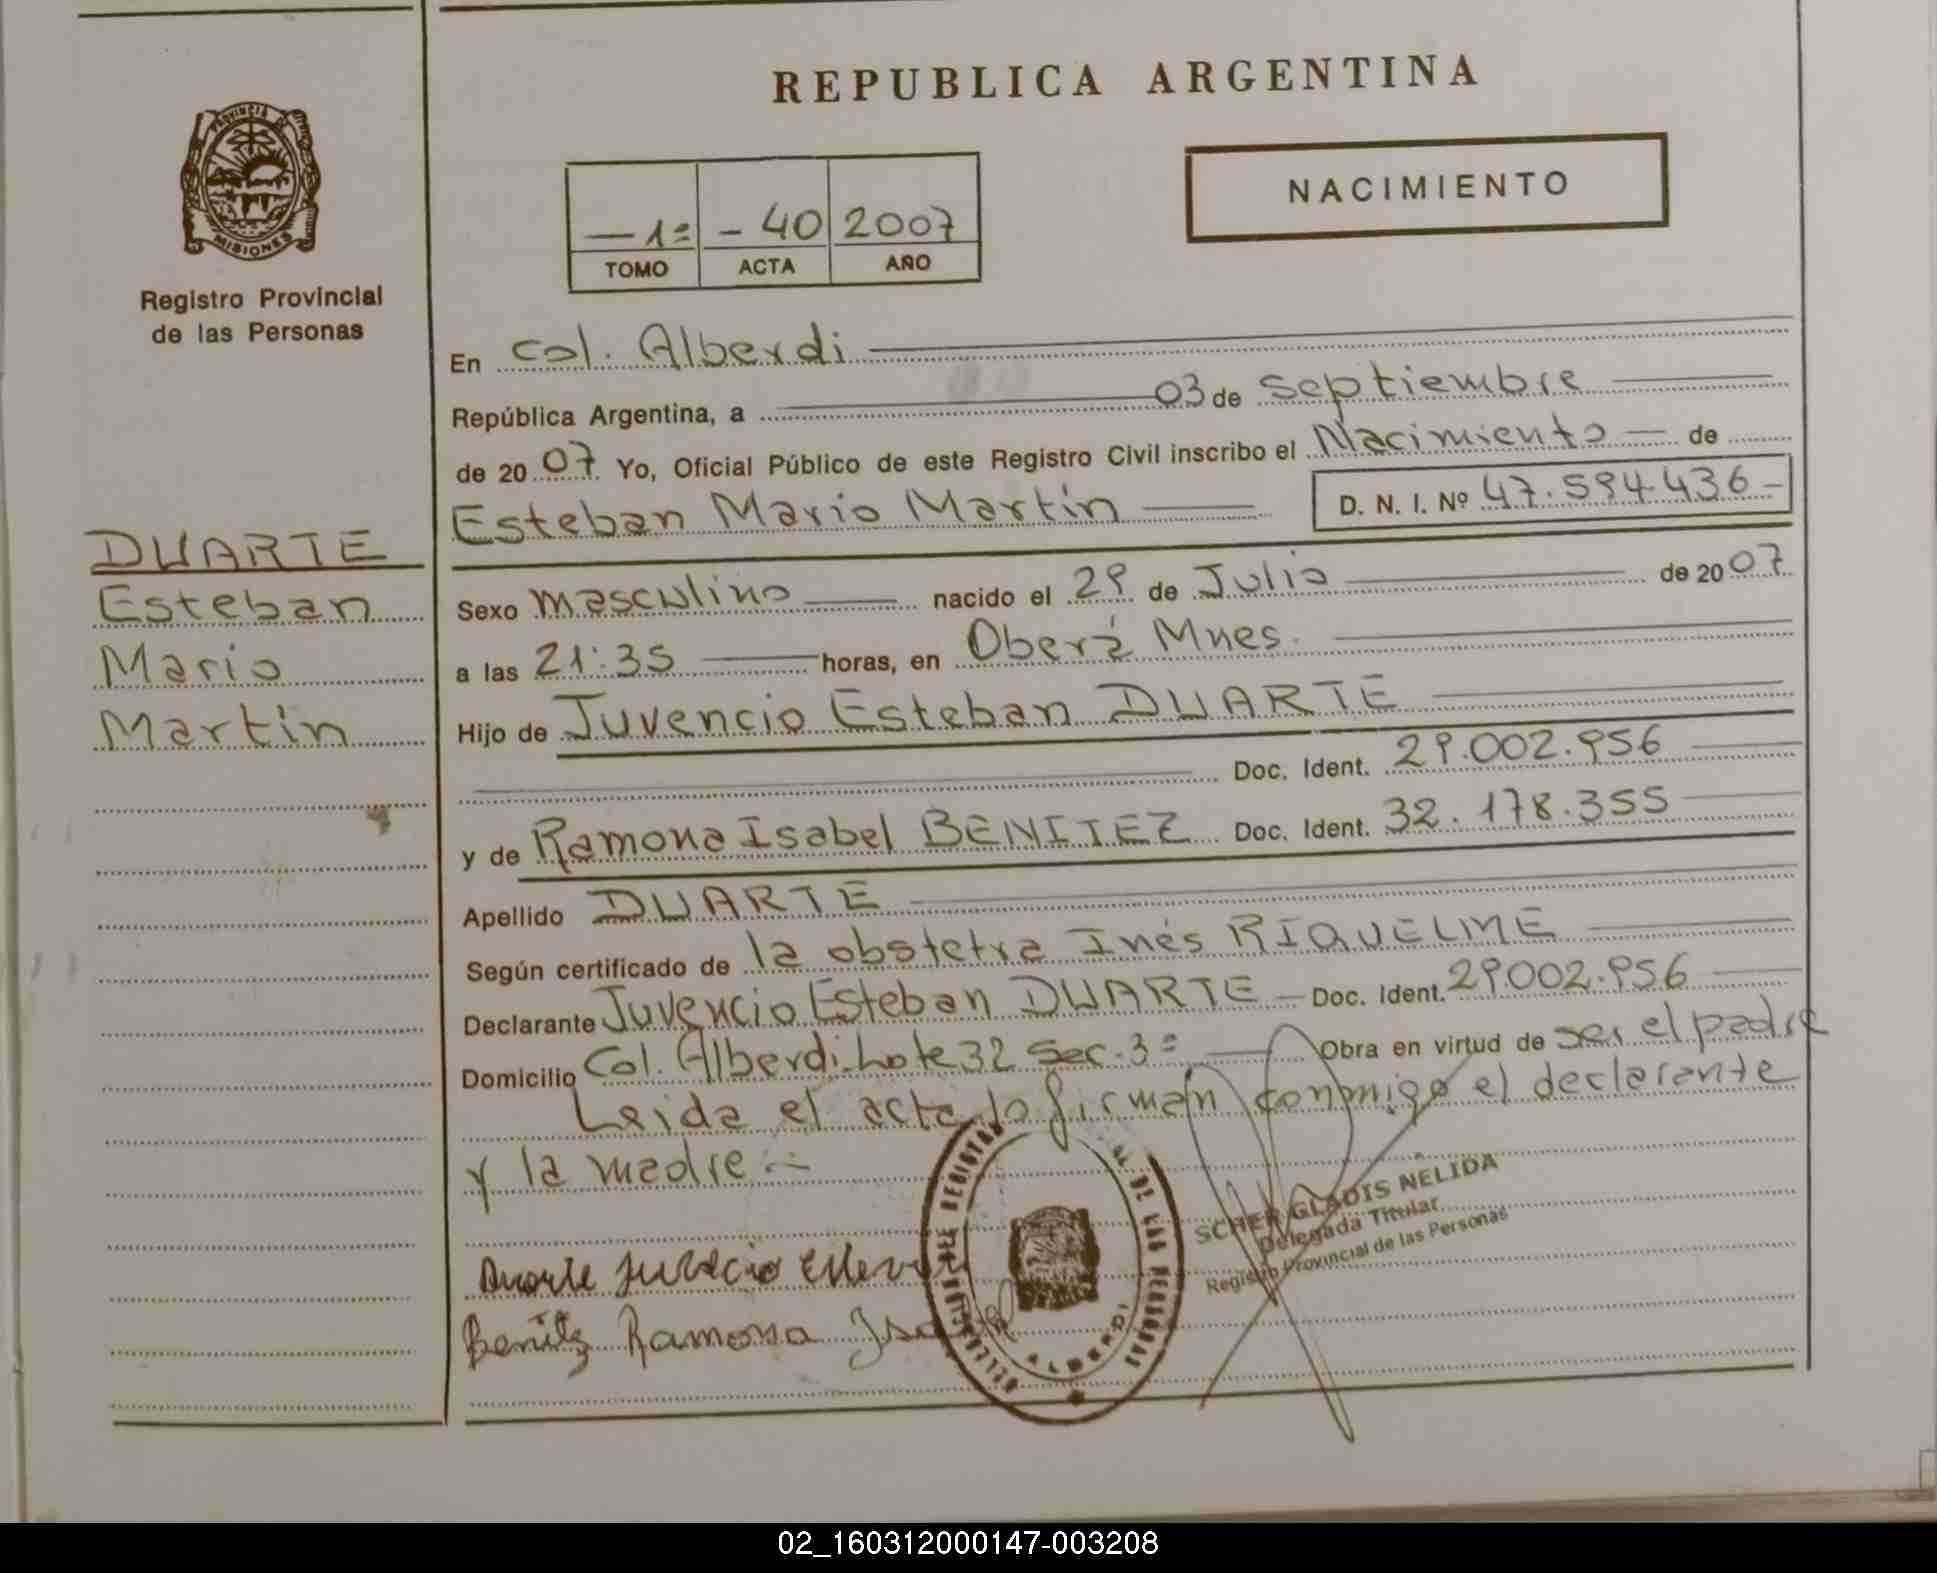 REPUBLICA ARGENTINA
PROVINCIA DE MISIONES
Registro Provincial
de las Personas
NACIMIENTO
— 1º - 40 2007
TOMO ACTA AÑO
En Col. Alberdi
República Argentina, a 03 de Septiembre
de 2007 Yo, Oficial Público de este Registro Civil inscribo el Nacimiento — de
Esteban Mario Martín D. N. I. Nº 47.594.436-
DUARTE
Esteban
Mario
Martín
Sexo masculino nacido el 29 de Julio de 2007
a las 21:35 horas, en Oberá Mnes.
Hijo de Juvencio Esteban DUARTE
Doc. Ident. 29.002.956
y de Ramona Isabel BENITEZ Doc. Ident. 32.178.355
Apellido DUARTE
Según certificado de la obstetra Inés RIQUELME
Declarante Juvencio Esteban DUARTE — Doc. Ident. 29.002.956
Domicilio Col. Alberdi. Lote 32 Sec. 3ª Obra en virtud de ser el padre
Leida el acta lo firman conmigo el declarante
y la madre.-
SCHER GLADIS NELIDA
Delegada Titular
Registro Provincial de las Personas
Duarte
Benitz Ramona
02_160312000147-003208